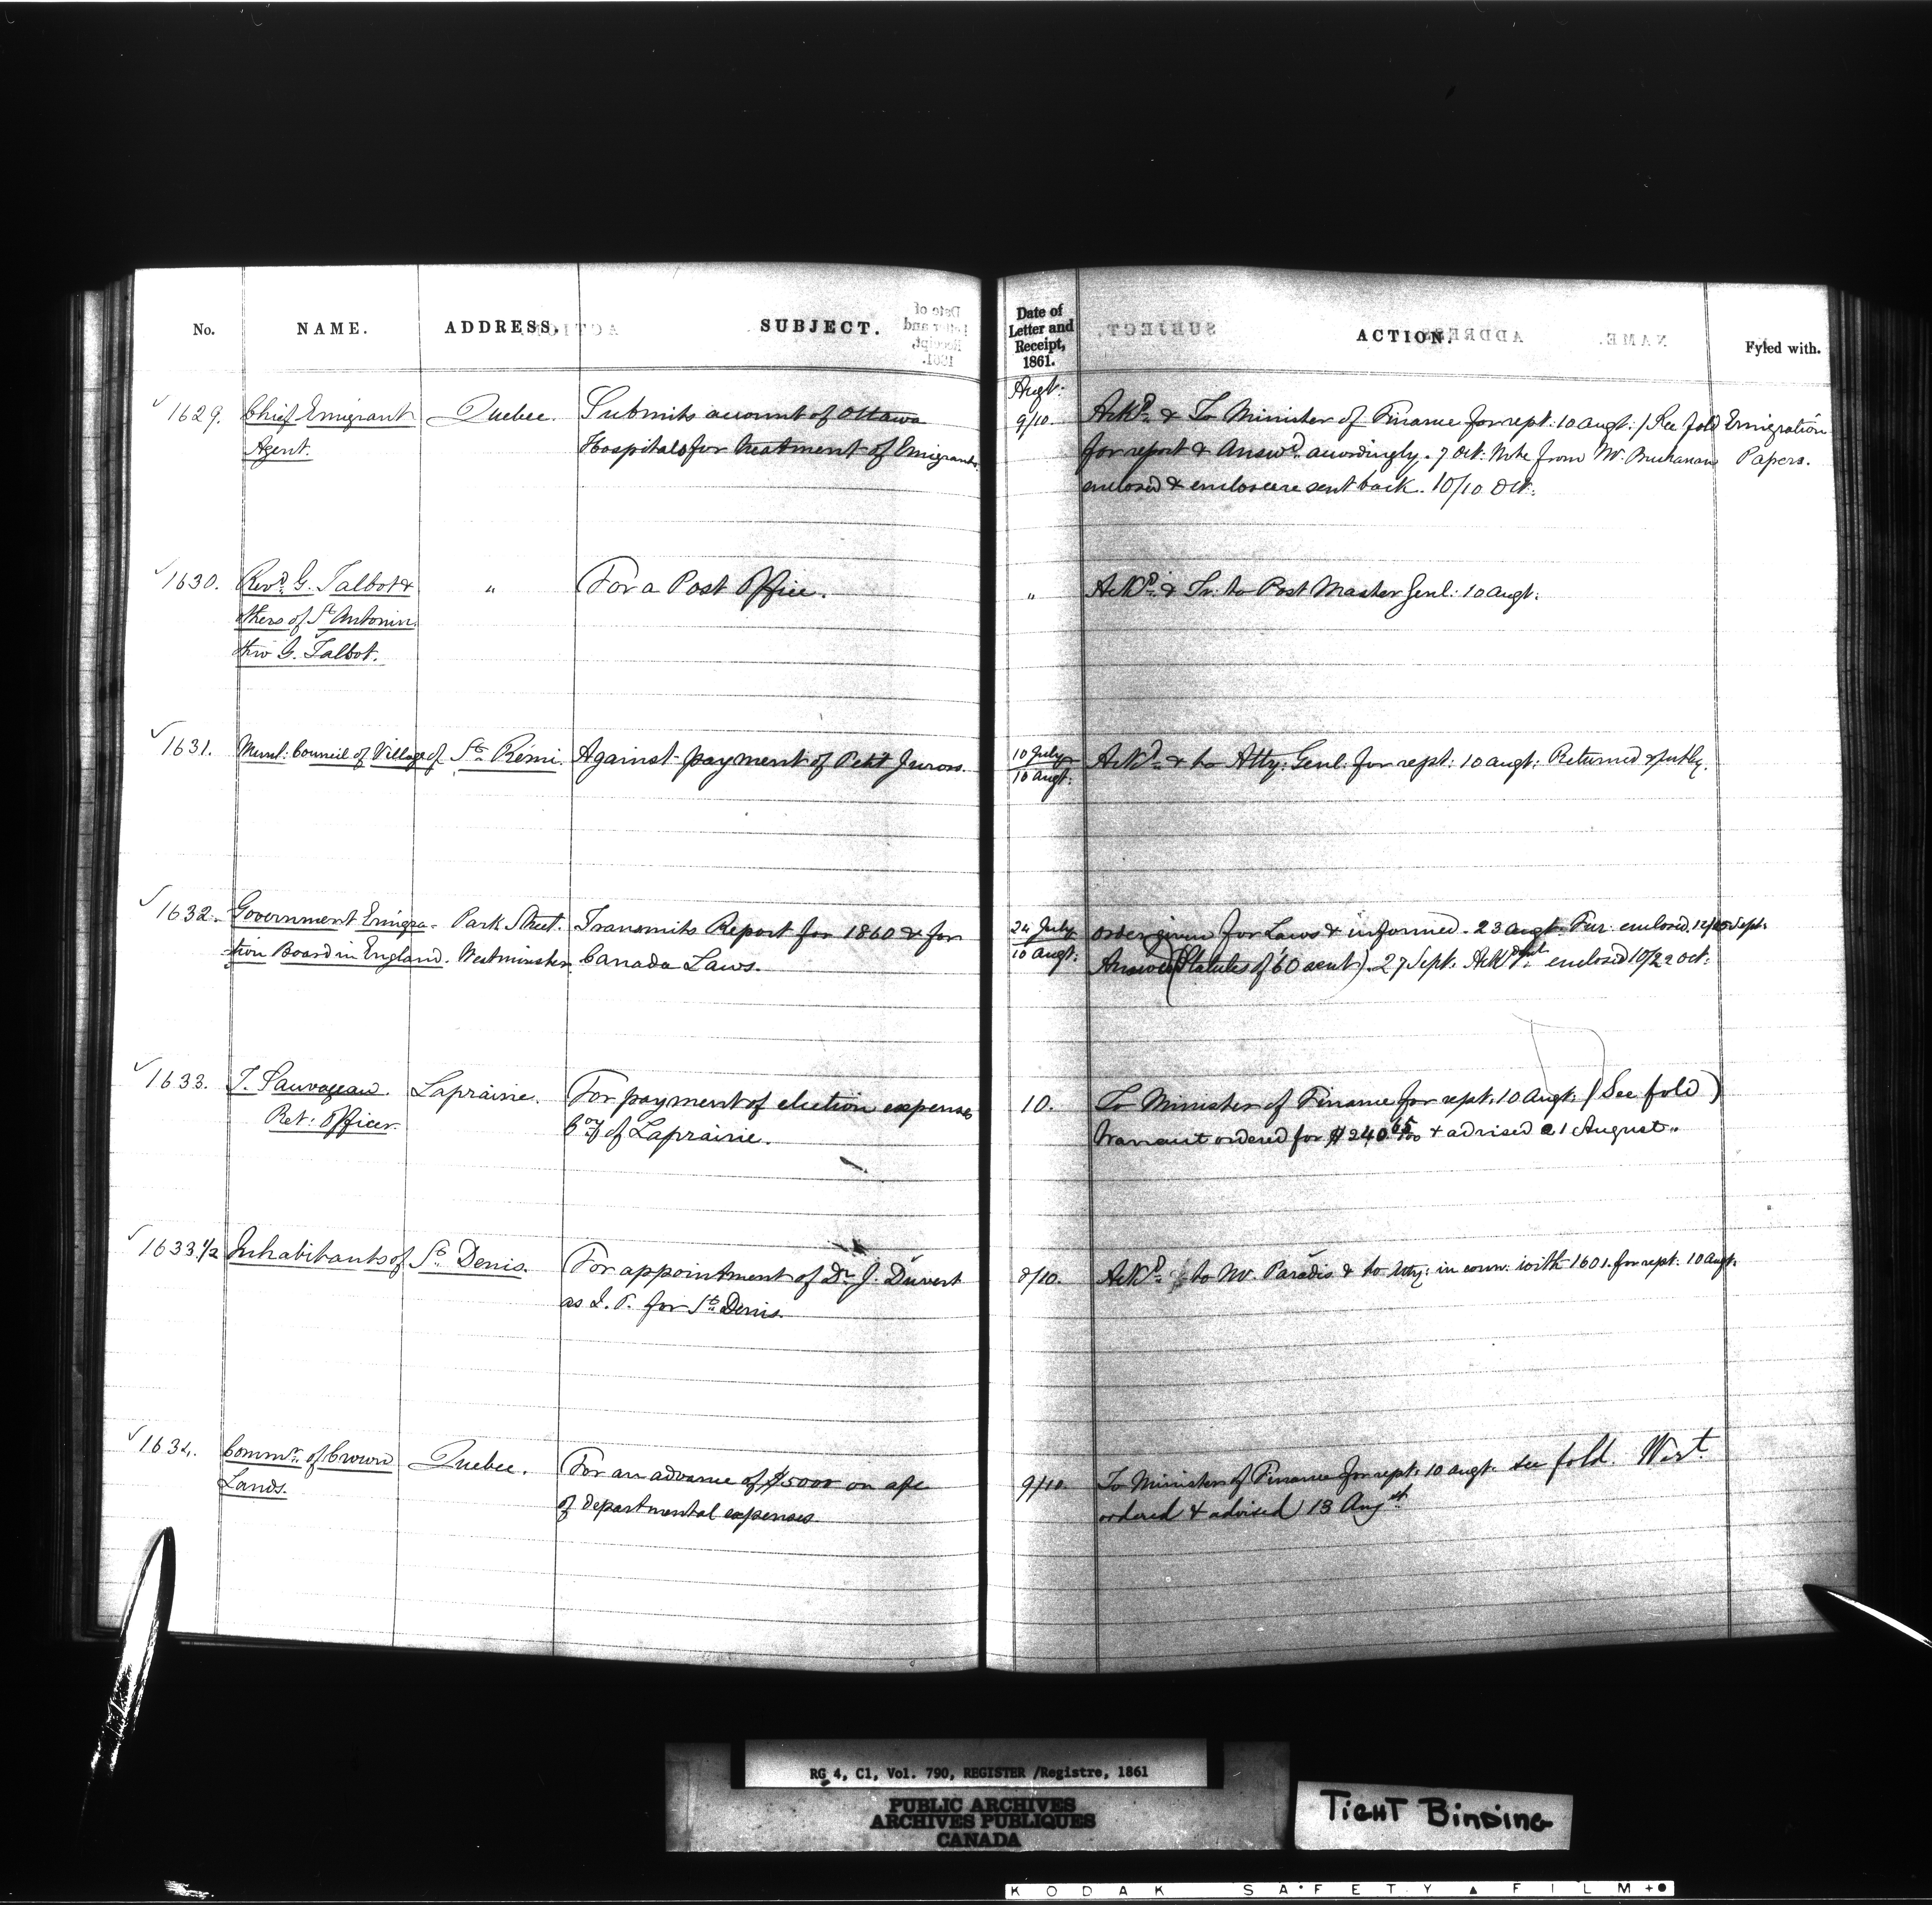 No. NAME. ADDRESS. SUBJECT. Date of Letter and Receipt, 1861. ACTION. Fyled with.
Augt:
1629. Chief Emigrant Quebec. Submits account of Ottawa 9/10. Ackd. & To Minister of Finance for rept: 10 augt: / See fold Emigration
Agent. Hospitals for treatment of Emigrants. for report & Answd. accordingly. 7 Oct: Note from Mr. Buchanan Papers.
enclosed & enclosure sent back. 10/10 Oct:
1630. Revd. G. Talbot & " For a Post Office. " Ackd. & Tr: to Post Master Genl: 10 augt:
others of St. Antonin.
thro G. Talbot.
1631. Munl: Council of Village of St. Rémi. Against payment of Petit Jurors. 10 July / 10 augt: Ackd. & to Atty: Genl: for rept: 10 augt: Returned
1632. Government Emigra- Park Street. Transmits Report for 1860 & for 24 July order given for Laws & informed. 23 augt. enclosed. Sept:
tion Board in England. Westminster. Canada Laws. 10 augt: Answered (Statutes of 60 sent). 27 Sept. Ackd. enclosed 10/22 Oct:
1633. T. Sauvageau. Laprairie. For payment of election expenses 10. To Minister of Finance for rept. 10 Augt: (See fold)
Ret: Officer. Coy of Laprairie. Warrant ordered for $240.65/100 & advised 21 August.
1633.1/2 Inhabitants of St. Denis. For appointment of Dr. J. Duvert 8/10. Ackd. to Mr. Paradis & to Atty: in conn: with 1601. for rept: 10 augt:
as J. P. for St. Denis.
1634. Commr. of Crown Quebec. For an advance of $5000 on a/c 9/10. To Minister of Finance for rept: 10 augt. See fold. Wart.
Lands. of departmental expenses. ordered & advised 13 Augst
RG 4, C1, Vol. 790, REGISTER /Registre, 1861
PUBLIC ARCHIVES
ARCHIVES PUBLIQUES
CANADA
TIGHT BINDING
KODAK SAFETY FILM